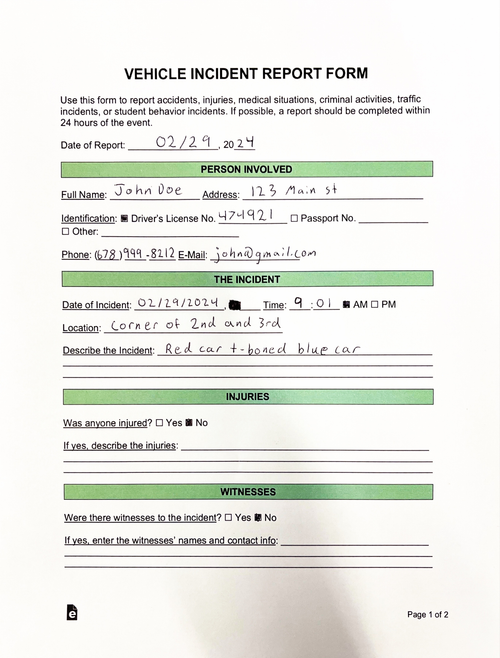 VEHICLE INCIDENT REPORT FORM
Use this form to report accidents, injuries, medical situations, criminal activities, traffic
incidents, or student behavior incidents. If possible, a report should be completed within
24 hours of the event.
Date of Report: 02/29, 2024
PERSON INVOLVED
Full Name: John Doe Address: 123 Main st
Identification: ☒ Driver's License No. 474921 ☐ Passport No.
☐ Other:
Phone: (678)999-8212 E-Mail: john@gmail.com
THE INCIDENT
Date of Incident: 02/29/2024, Time: 9:01 ☒ AM ☐ PM
Location: Corner of 2nd and 3rd
Describe the Incident: Red car t-boned blue car
INJURIES
Was anyone injured? ☐ Yes ☒ No
If yes, describe the injuries:
WITNESSES
Were there witnesses to the incident? ☐ Yes ☒ No
If yes, enter the witnesses' names and contact info:
e
Page 1 of 2